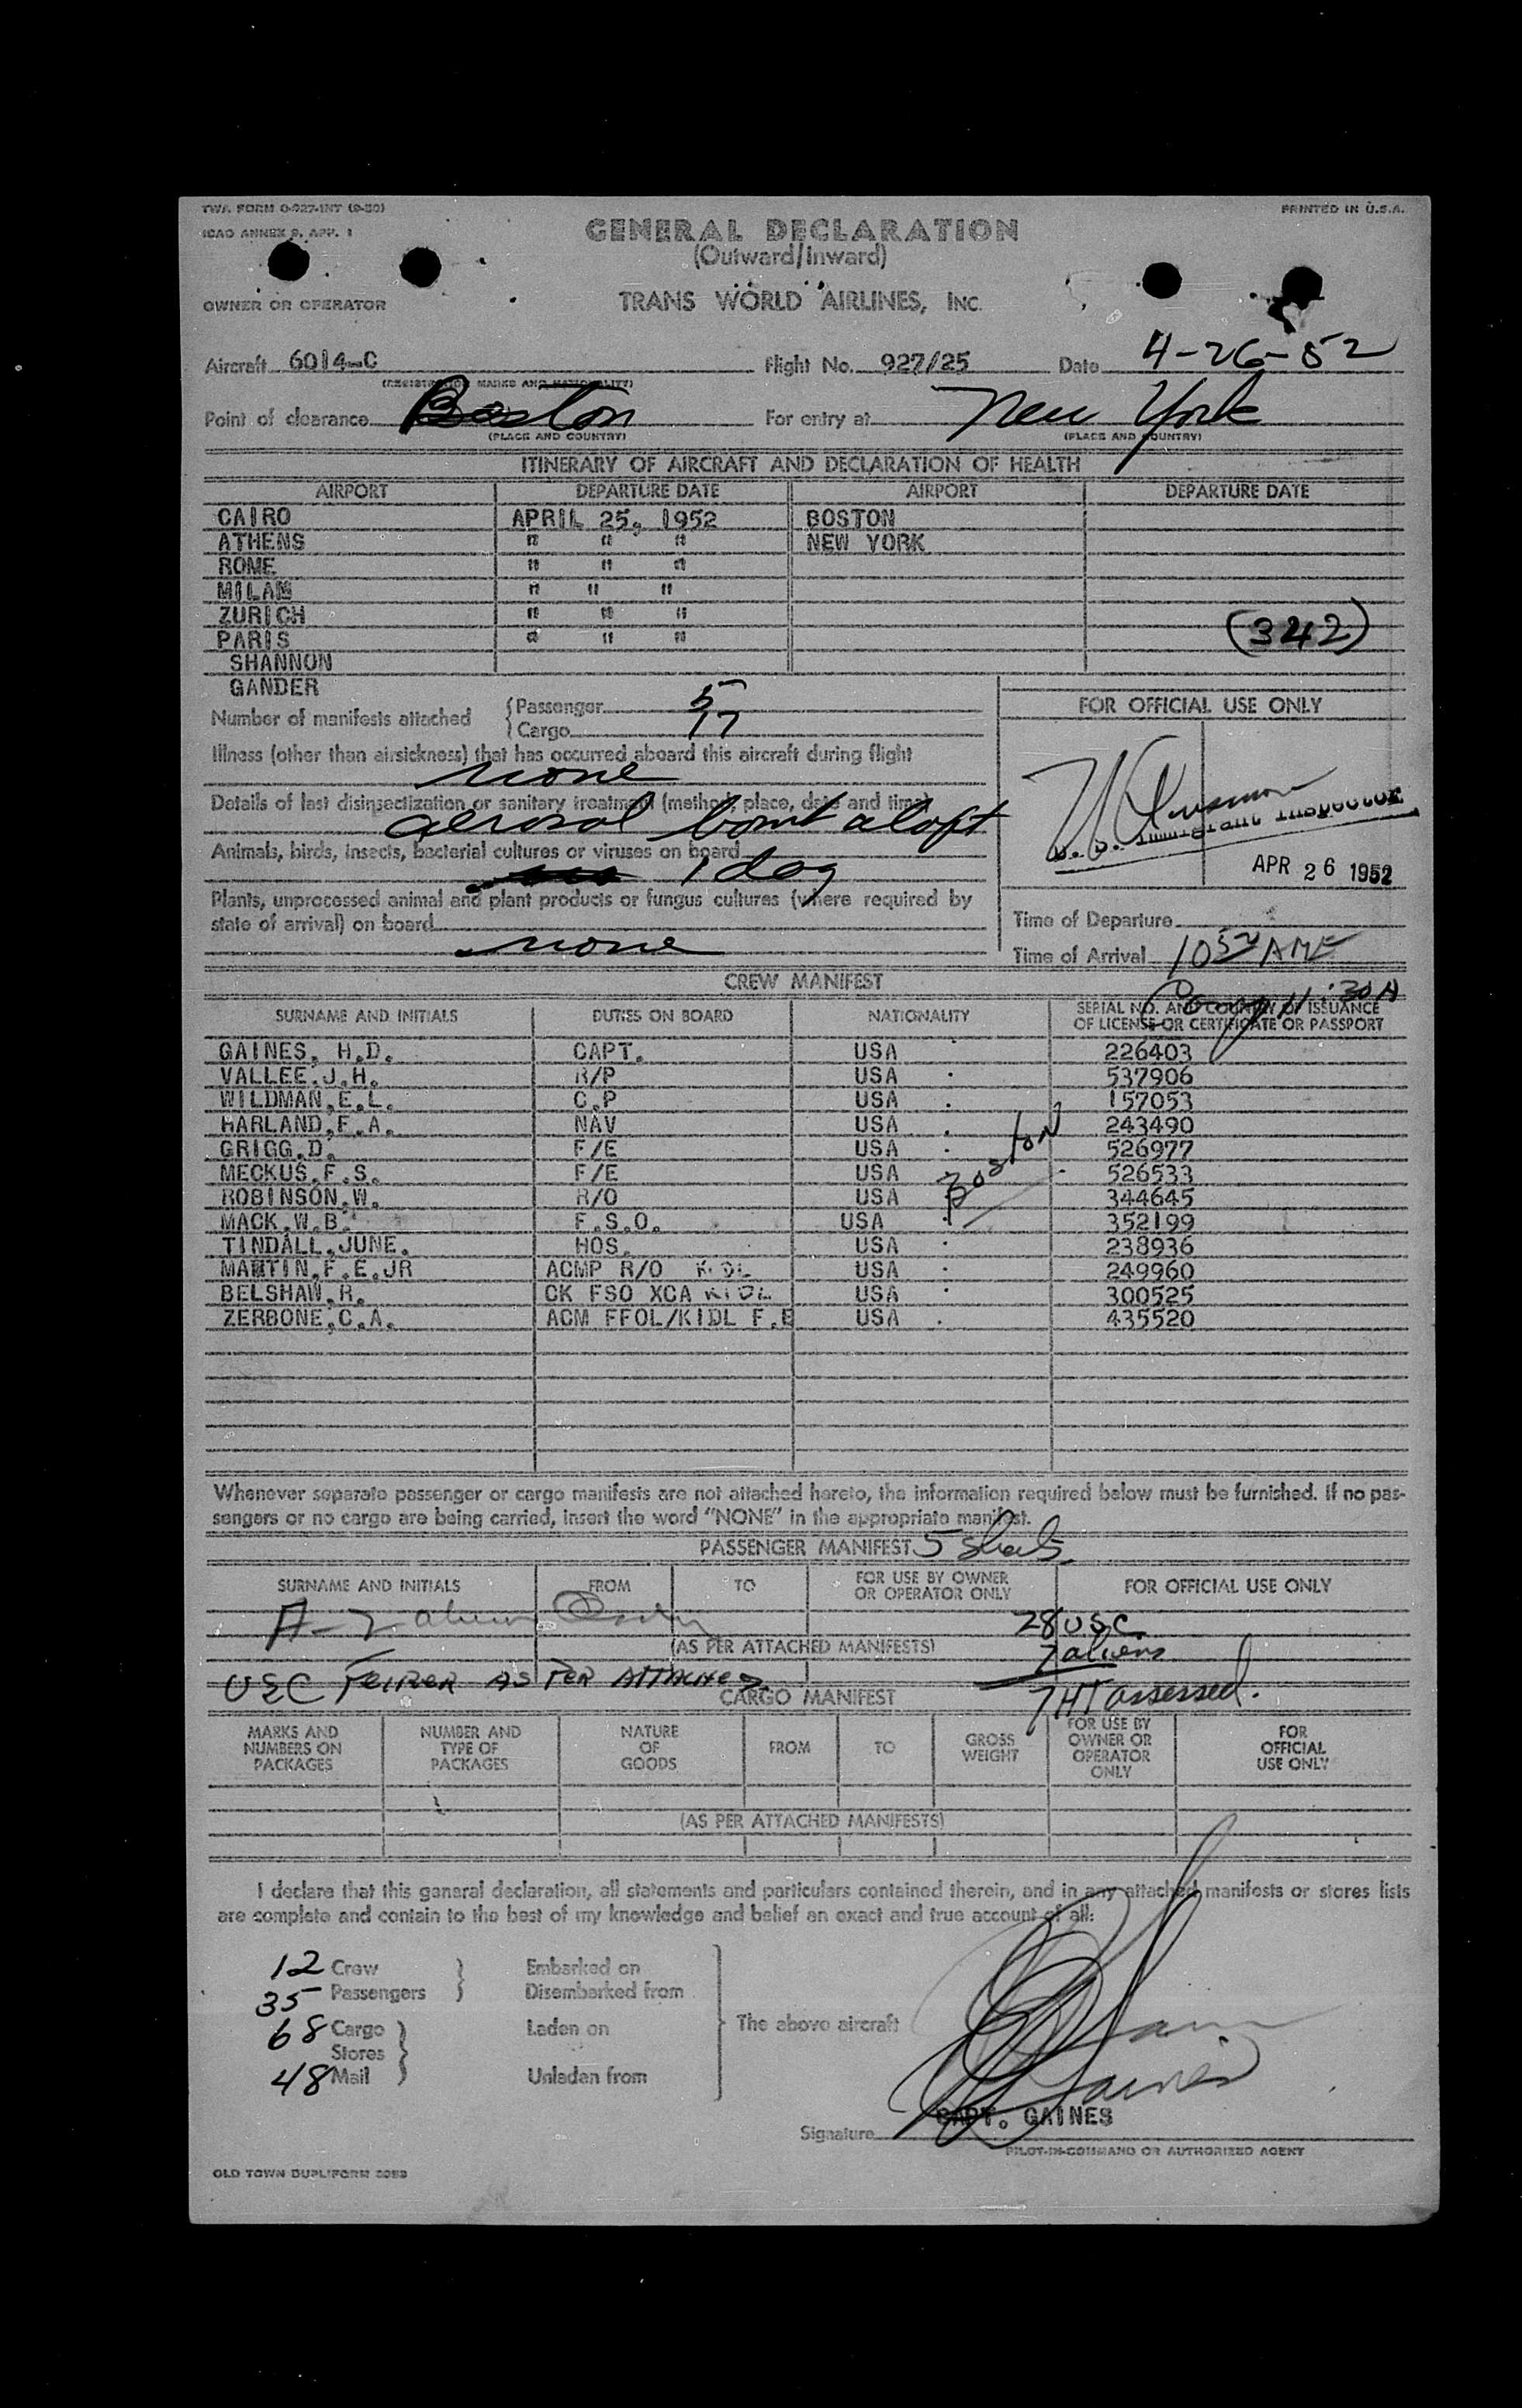 TWA FORM O-927-INT (9-50)
PRINTED IN U.S.A.
ICAO ANNEX 9, APP. 1
GENERAL DECLARATION
(Outward/Inward)
OWNER OR OPERATOR
TRANS WORLD AIRLINES, INC.
Aircraft 6014-C Flight No. 927/25 Date 4-26-52
(REGISTRATION MARKS AND NATIONALITY)
Point of clearance Boston For entry at New York
(PLACE AND COUNTRY) (PLACE AND COUNTRY)
ITINERARY OF AIRCRAFT AND DECLARATION OF HEALTH
AIRPORT DEPARTURE DATE AIRPORT DEPARTURE DATE
CAIRO APRIL 25, 1952 BOSTON
ATHENS " " " NEW YORK
ROME " " "
MILAN " " "
ZURICH " " "
PARIS " " " (342)
SHANNON
GANDER
Number of manifests attached
Passenger 5
Cargo 17
FOR OFFICIAL USE ONLY
Illness (other than airsickness) that has occurred aboard this aircraft during flight
none
Details of last disinsectization or sanitary treatment (method, place, date and time)
aerosol bomb aloft
U. S. Immigrant Inspector
Animals, birds, insects, bacterial cultures or viruses on board
1 dog
APR 26 1952
Plants, unprocessed animal and plant products or fungus cultures (where required by
state of arrival) on board
none
Time of Departure
Time of Arrival 10 52 AM
11:30A
CREW MANIFEST
SURNAME AND INITIALS DUTIES ON BOARD NATIONALITY SERIAL NO. AND COUNTRY OF ISSUANCE
OF LICENSE OR CERTIFICATE OR PASSPORT
GAINES, H.D. CAPT. USA 226403
VALLEE.J.H. R/P USA 537906
WILDMAN.E.L. C.P USA 157053
HARLAND.F.A. NAV USA 243490
GRIGG.D. F/E USA 526977
MECKUS.F.S. F/E USA 526533
ROBINSON.W. R/O USA 344645
MACK.W.B. F.S.O. USA 352199
TINDALL.JUNE. HOS. USA 238936
MARTIN.F.E.JR ACMP R/O KIDL USA 249960
BELSHAW.R. CK FSO XCA KIDL USA 300525
ZERBONE.C.A. ACM FFOL/KIDL F.E USA 435520
Boston
Whenever separate passenger or cargo manifests are not attached hereto, the information required below must be furnished. If no pas-
sengers or no cargo are being carried, insert the word "NONE" in the appropriate manifest.
PASSENGER MANIFEST 5 sheets
SURNAME AND INITIALS FROM TO FOR USE BY OWNER
OR OPERATOR ONLY FOR OFFICIAL USE ONLY
28 USC
(AS PER ATTACHED MANIFESTS) 7 aliens
USC AS PER ATTACHED
7 HT assessed.
CARGO MANIFEST
MARKS AND
NUMBERS ON
PACKAGES
NUMBER AND
TYPE OF
PACKAGES
NATURE
OF
GOODS
FROM
TO
GROSS
WEIGHT
FOR USE BY
OWNER OR
OPERATOR
ONLY
FOR
OFFICIAL
USE ONLY
(AS PER ATTACHED MANIFESTS)
I declare that this general declaration, all statements and particulars contained therein, and in any attached manifests or stores lists
are complete and contain to the best of my knowledge and belief an exact and true account of all:
12 Crew Embarked on
35 Passengers Disembarked from
68 Cargo Laden on The above aircraft
Stores
48 Mail Unladen from
H Gaines
CAPT. GAINES
Signature
PILOT-IN-COMMAND OR AUTHORIZED AGENT
OLD TOWN DUPLIFORM